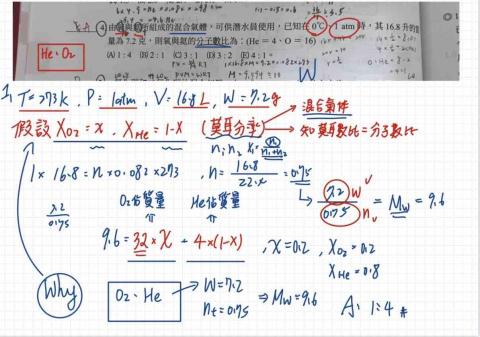 ④由氦與氧所組成的混合氣體,可供潛水員使用,已知在0℃、1 atm時,其16.8升的質
量為7.2克,則氧與氦的分子數比為:(He=4,O=16)
(A)1:4 (B)2:1 (C)3:1 (D)3:2 (E)4:1。
He、O₂
W
1. T=273K , P=1atm , V=16.8L , W=7.2g
假設 X_O₂=x , X_He=1-x (莫耳分率)
混合氣体
知莫耳數比=分子數比
1×16.8=n×0.082×273 , n=16.8/22.4=0.75
7.2 W
0.75 n
=Mw=9.6
7.2
0.75
O₂佔質量
He佔質量
9.6=32×x+4×(1-x) , x=0.2 , X_O₂=0.2
X_He=0.8
Why
O₂、He
W=7.2
n_t=0.75
⇒Mw=9.6
A:1:4 #